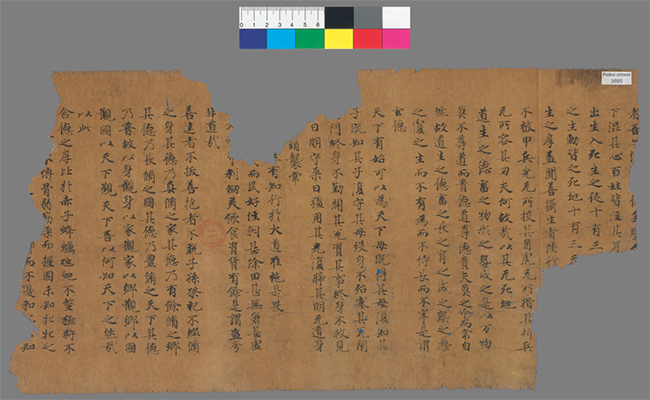 下混其心百姓皆注其耳
出生入死生之徒十有三
之生動皆之死地十有三
生之厚蓋聞善攝生者陸行
不被甲兵兕无所投其角虎无所措其爪兵
无所容其刃夫何故哉以其无死地
道生之德畜之物形之勢成之是以万物
莫不尊道而貴德道尊德貴夫莫之命而常自
然故道生之德畜之長之育之成之熟之養
之覆之生而不有爲而不恃長而不宰是謂
玄德
天下有始可以爲天下母既得其母復知其
子既知其子復守其母殁身不殆塞其兌閇
門終身不勤開其兌濟其事終身不救見
曰明守柔曰強用其光復歸其明无遺身
謂襲常
有知行於大道唯施是畏
而民好徑朝甚除田甚蕪倉甚虛
利劒猒飲食資貨有餘是謂盜夸
非道哉
善建者不拔善抱者不脫子孫祭祀不輟脩
之身其德乃真脩之家其德乃有餘脩之鄉
其德乃長脩之國其德乃豐脩之天下其德
乃普故以身觀身以家觀家以鄉觀鄉以國
觀國以天下觀天下吾何以知天下之然哉
以此
含德之厚比於赤子蜂蠆虺虵不螫 不
搏骨弱筋柔而握固未知牝牡之
Pelliot chinois
3895